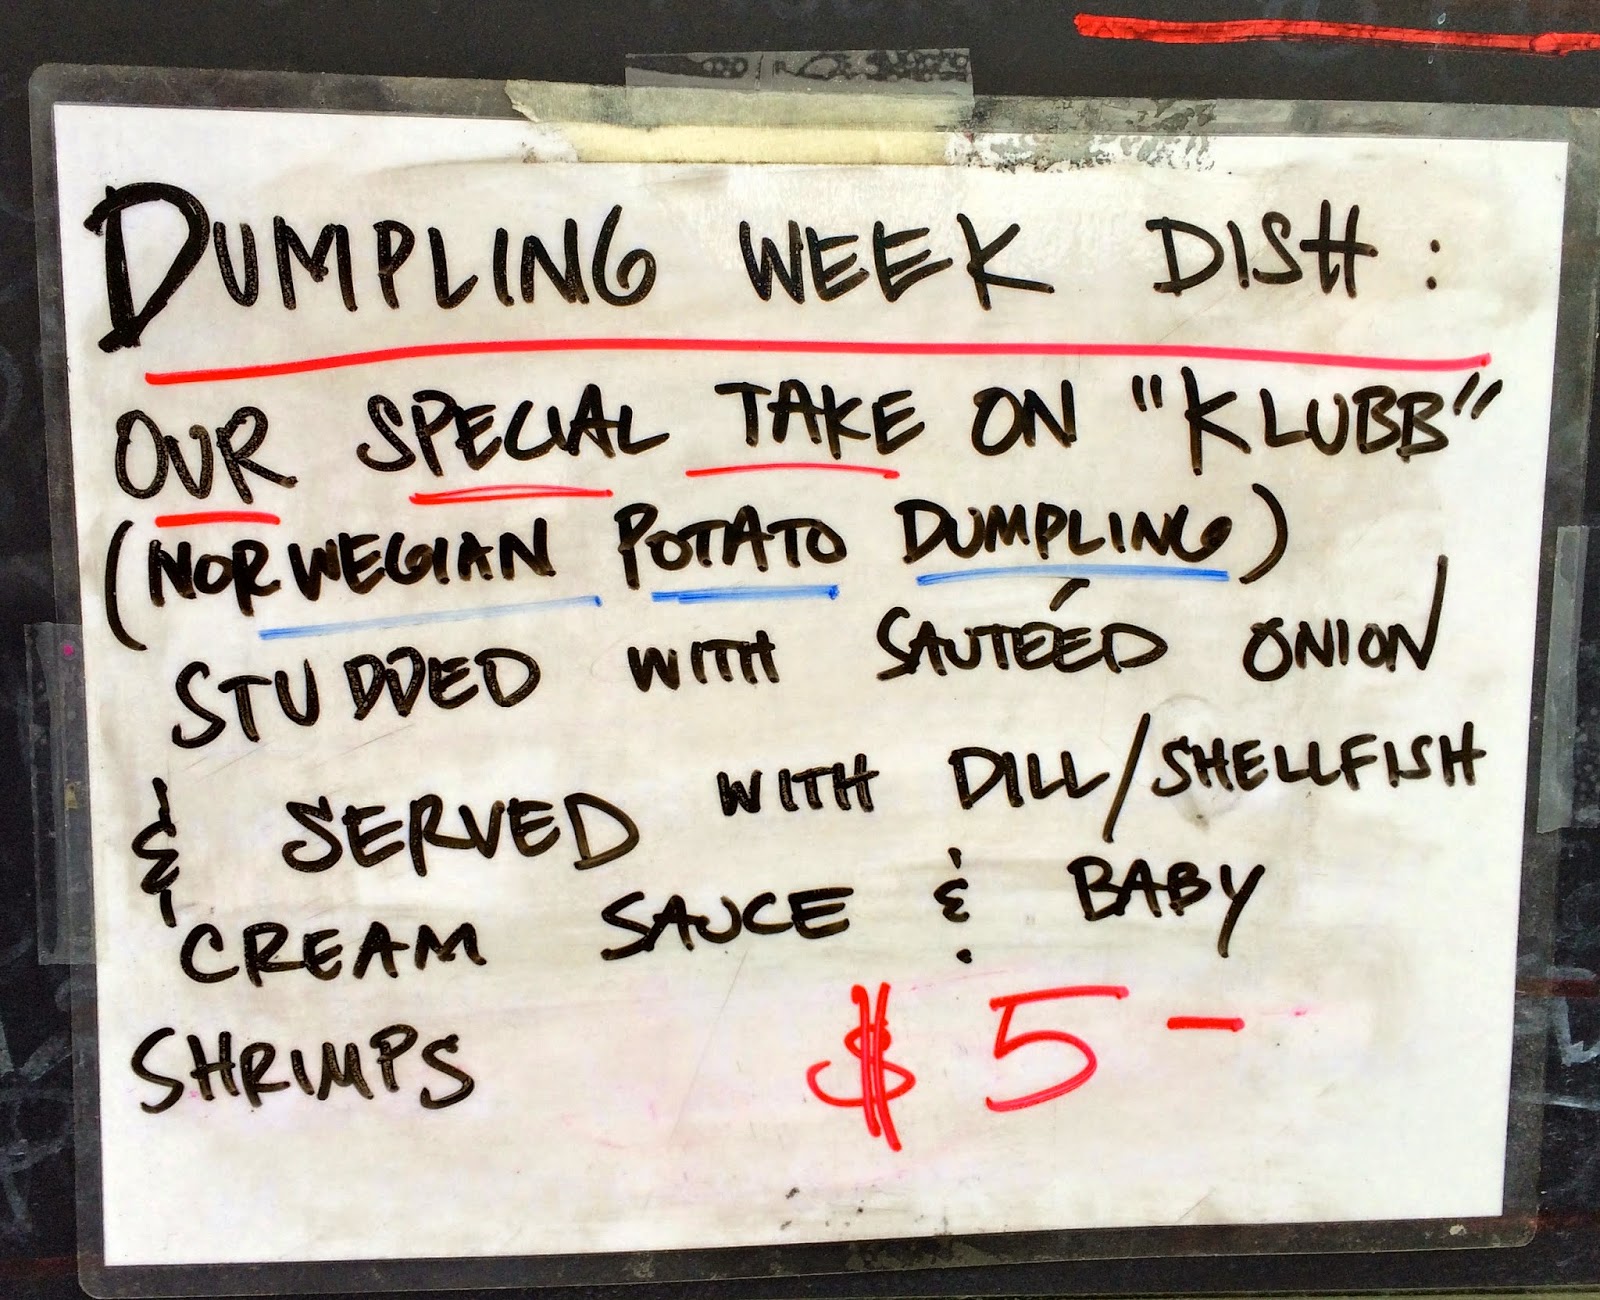 DUMPLING WEEK DISH:
OUR SPECIAL TAKE ON "KLUBB"
(NORWEGIAN POTATO DUMPLING)
STUDDED WITH SAUTÉED ONION
& SERVED WITH DILL/SHELLFISH
CREAM SAUCE & BABY
SHRIMPS $5-